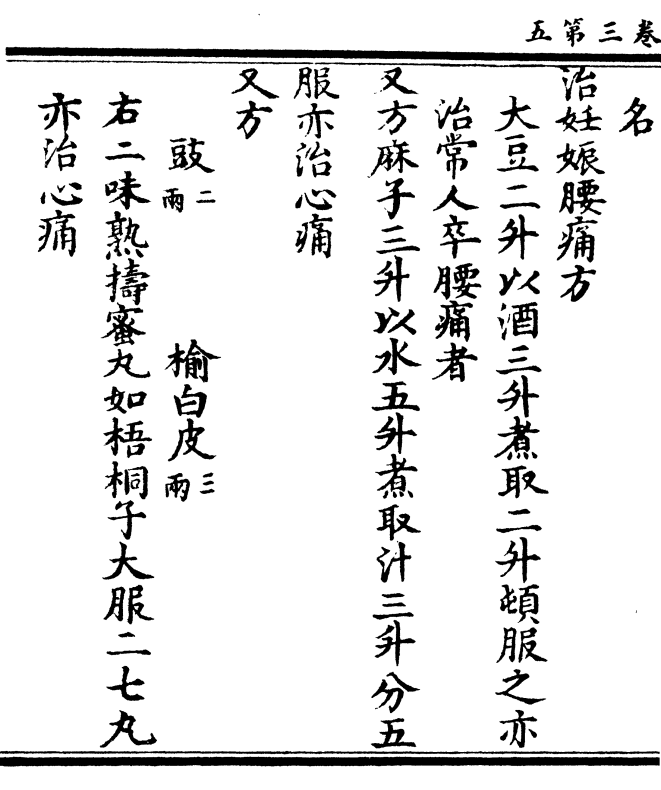 卷三第五
名
治妊娠腰痛方
大豆二升以酒三升煮取二升頓服之亦
治常人卒腰痛者
又方麻子三升以水五升煮取汁三升分五
服亦治心痛
又方
豉二兩 榆白皮三兩
右二味熟擣蜜丸如梧桐子大服二七丸
亦治心痛